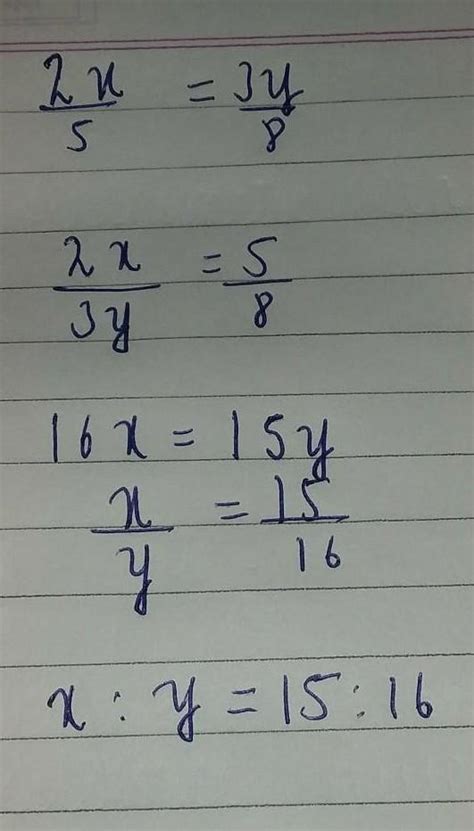 2x/5 = 3y/8
2x/3y = 5/8
16x = 15y
x/y = 15/16
x : y = 15 : 16